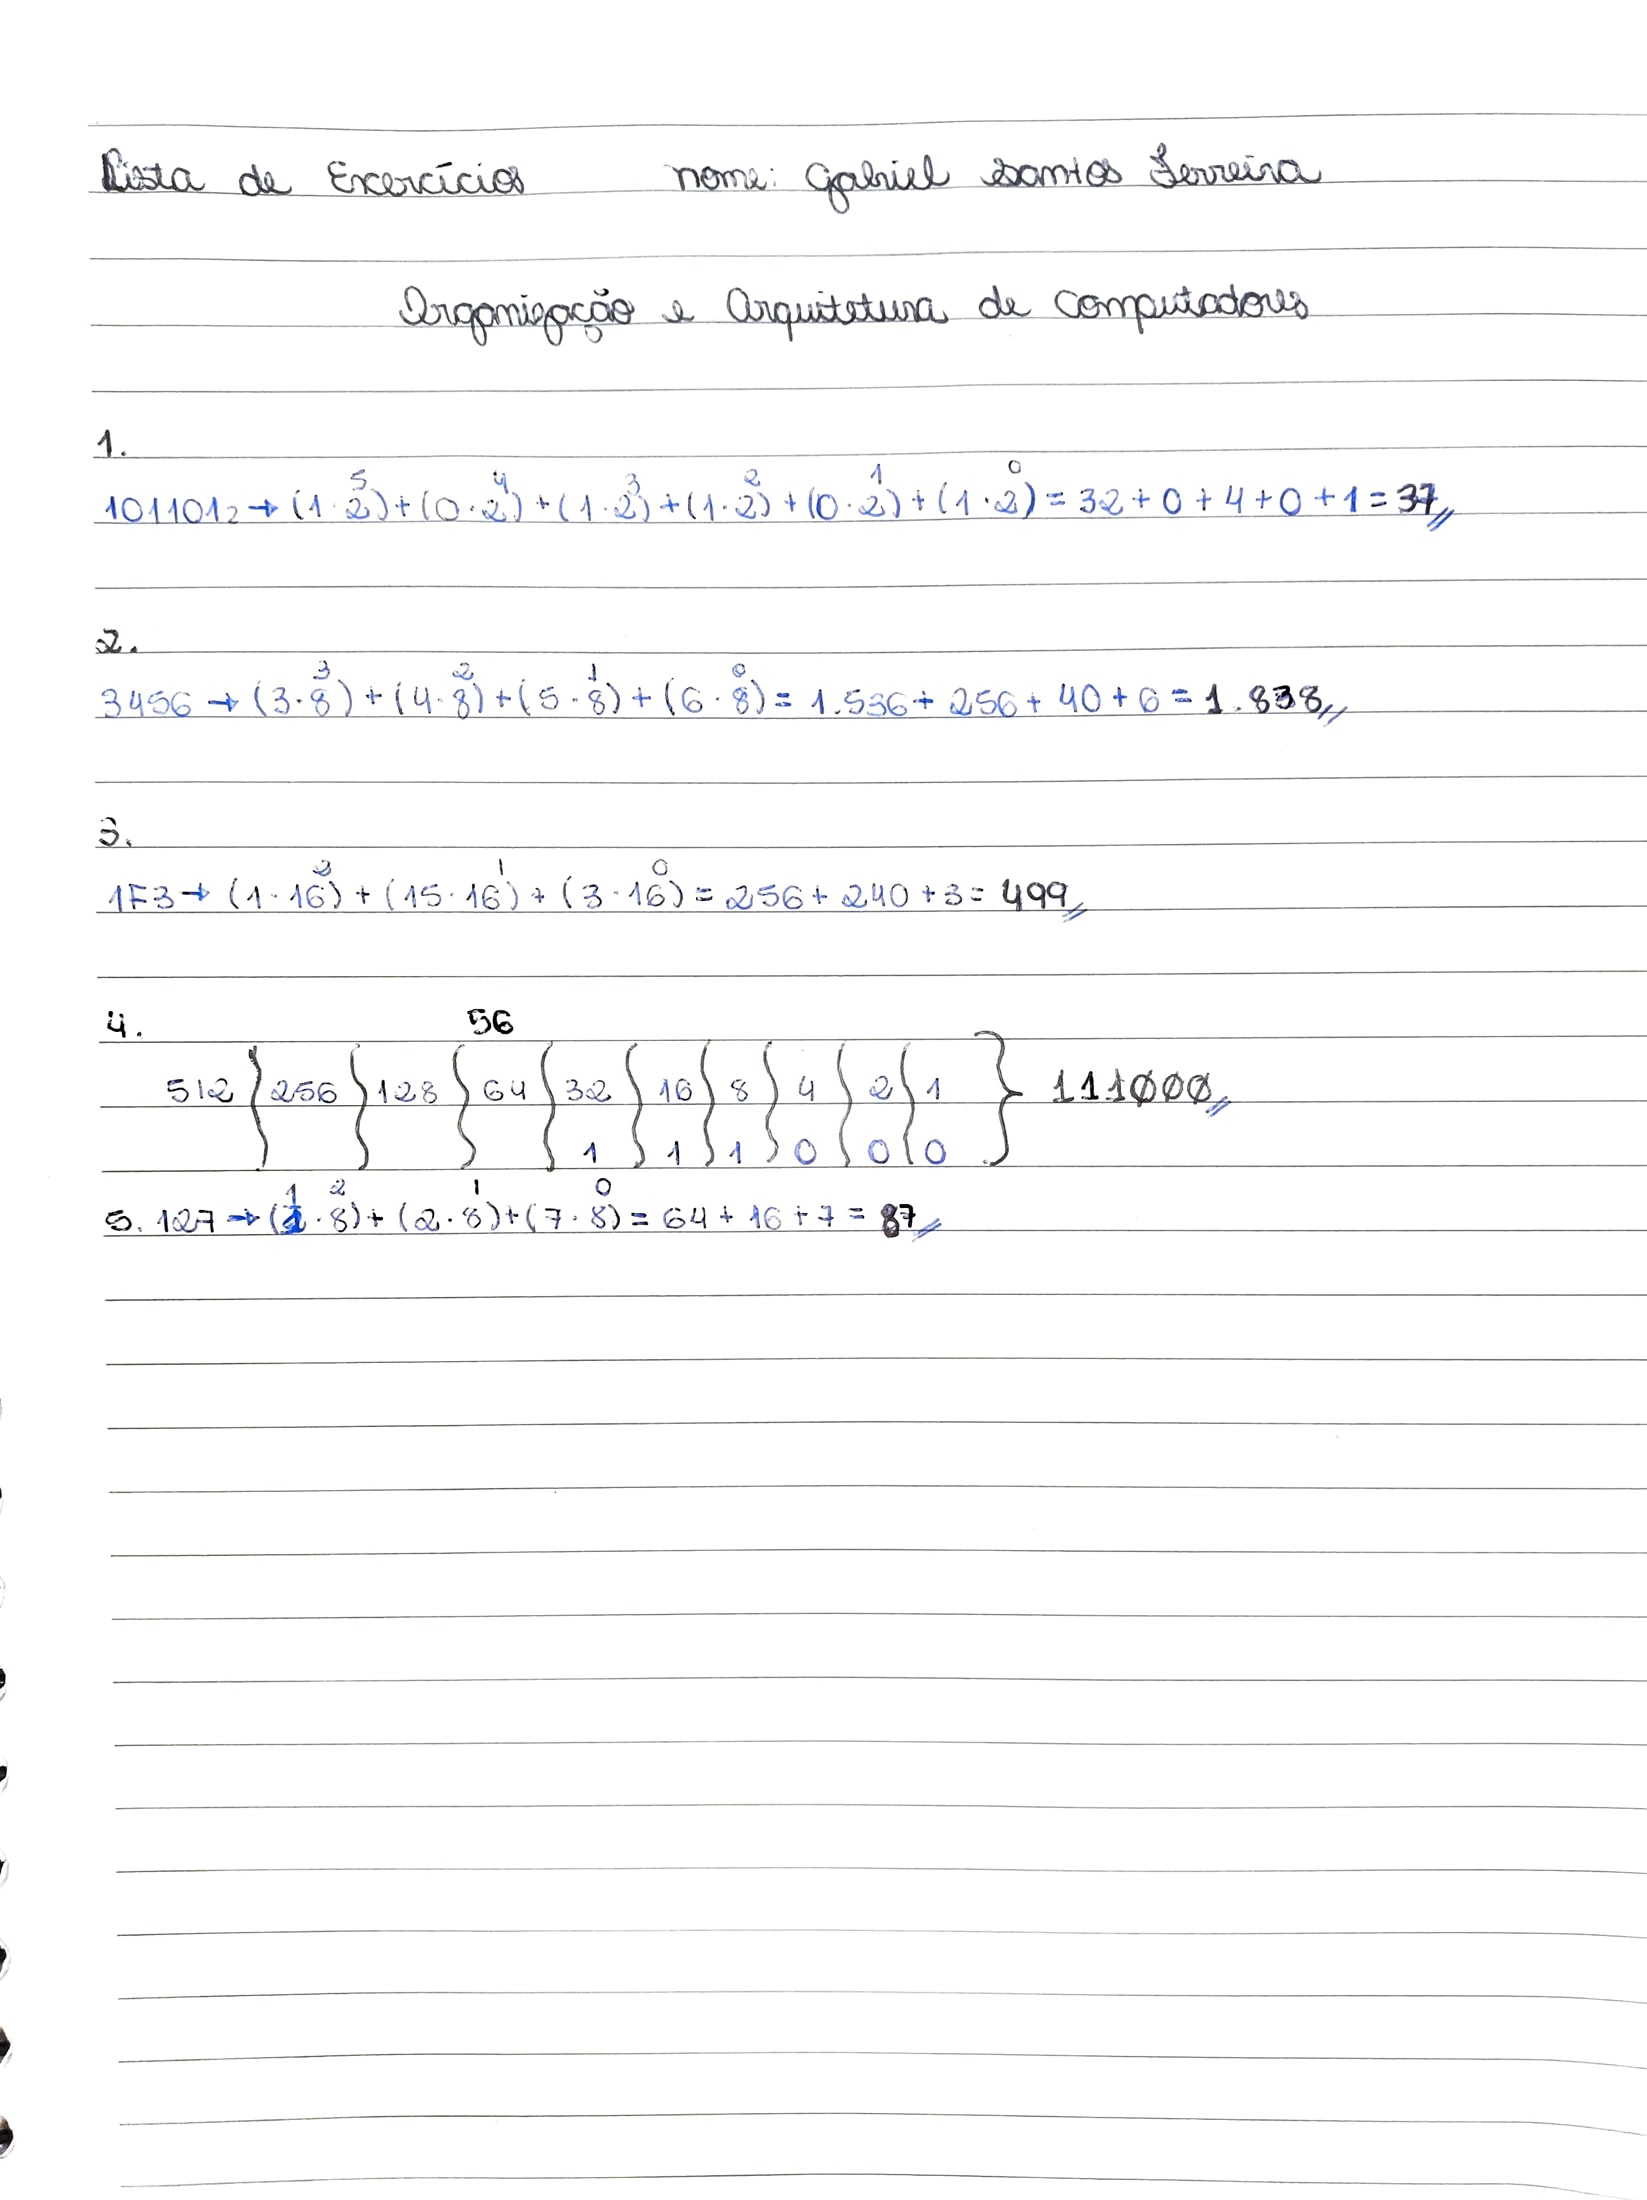 Lista de Exercícios nome: Gabriel Santos Ferreira
Organização e Arquitetura de Computadores
1.
101101₂ → (1·2⁵)+(0·2⁴)+(1·2³)+(1·2²)+(0·2¹)+(1·2⁰) = 32+0+4+0+1 = 37
2.
3456 → (3·8³)+(4·8²)+(5·8¹)+(6·8⁰) = 1.536+256+40+6 = 1.838
3.
1F3 → (1·16²)+(15·16¹)+(3·16⁰) = 256+240+3 = 499
4. 56
512 256 128 64 32 16 8 4 2 1 } 111000
1 1 1 0 0 0
5. 127 → (1·8²)+(2·8¹)+(7·8⁰) = 64+16+7 = 87